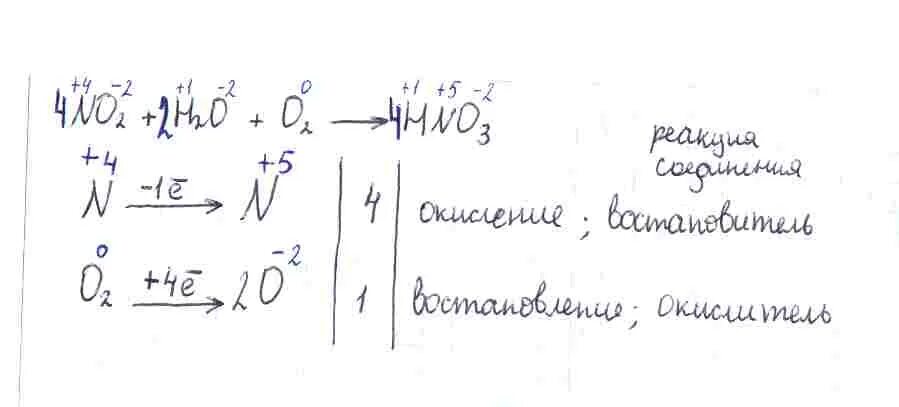 +4 -2 +1 -2 0 +1 +5 -2
4NO2 + 2H2O + O2 → 4HNO3
реакция
соединения
+4 +5
N -1ē → N | 4 | окисление ; востановитель
0 -2
O2 +4ē → 2O | 1 | востановление; окислитель